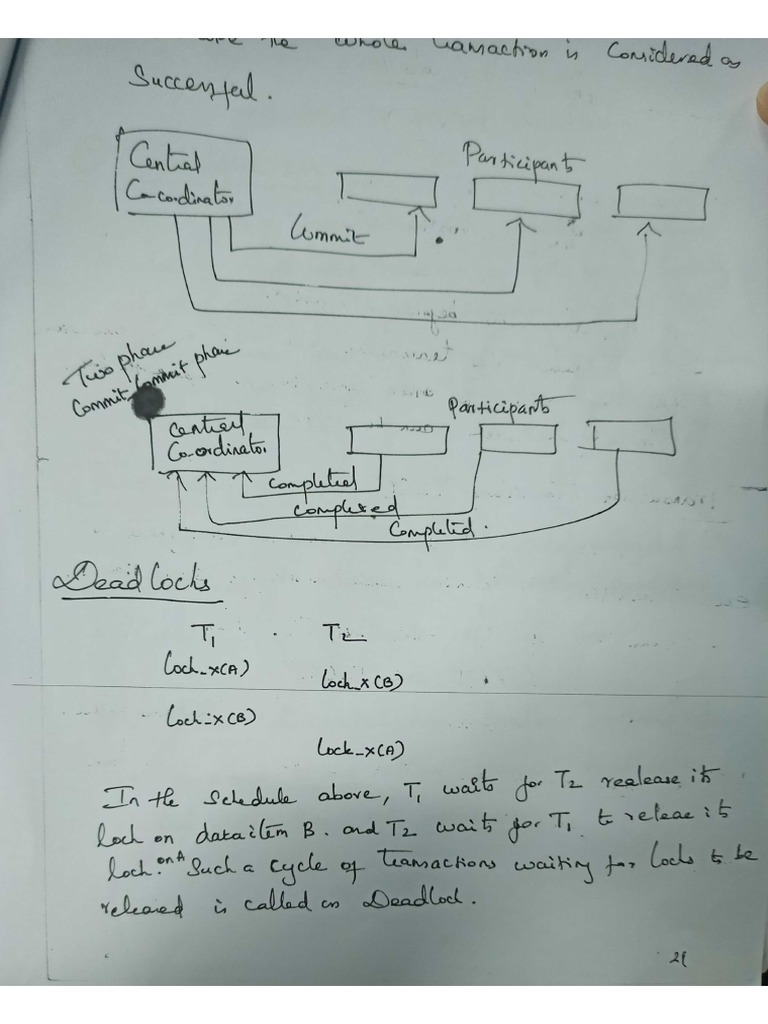 the whole transaction is Considered as
Successful.
Central
Co-coordinator
Participants
Commit
Two phase
Commit Commit phase
Central
Co-ordinator
Participants
completed
completed
Completed.
Deadlocks
T1 T2
lock_x(A)
lock_x(B)
lock-x(B)
lock_x(A)
In the schedule above, T1 waits for T2 realease its
lock on data item B. and T2 waits for T1 to release its
lock. on A Such a cycle of transactions waiting for locks to be
released is called as Deadlock.
21